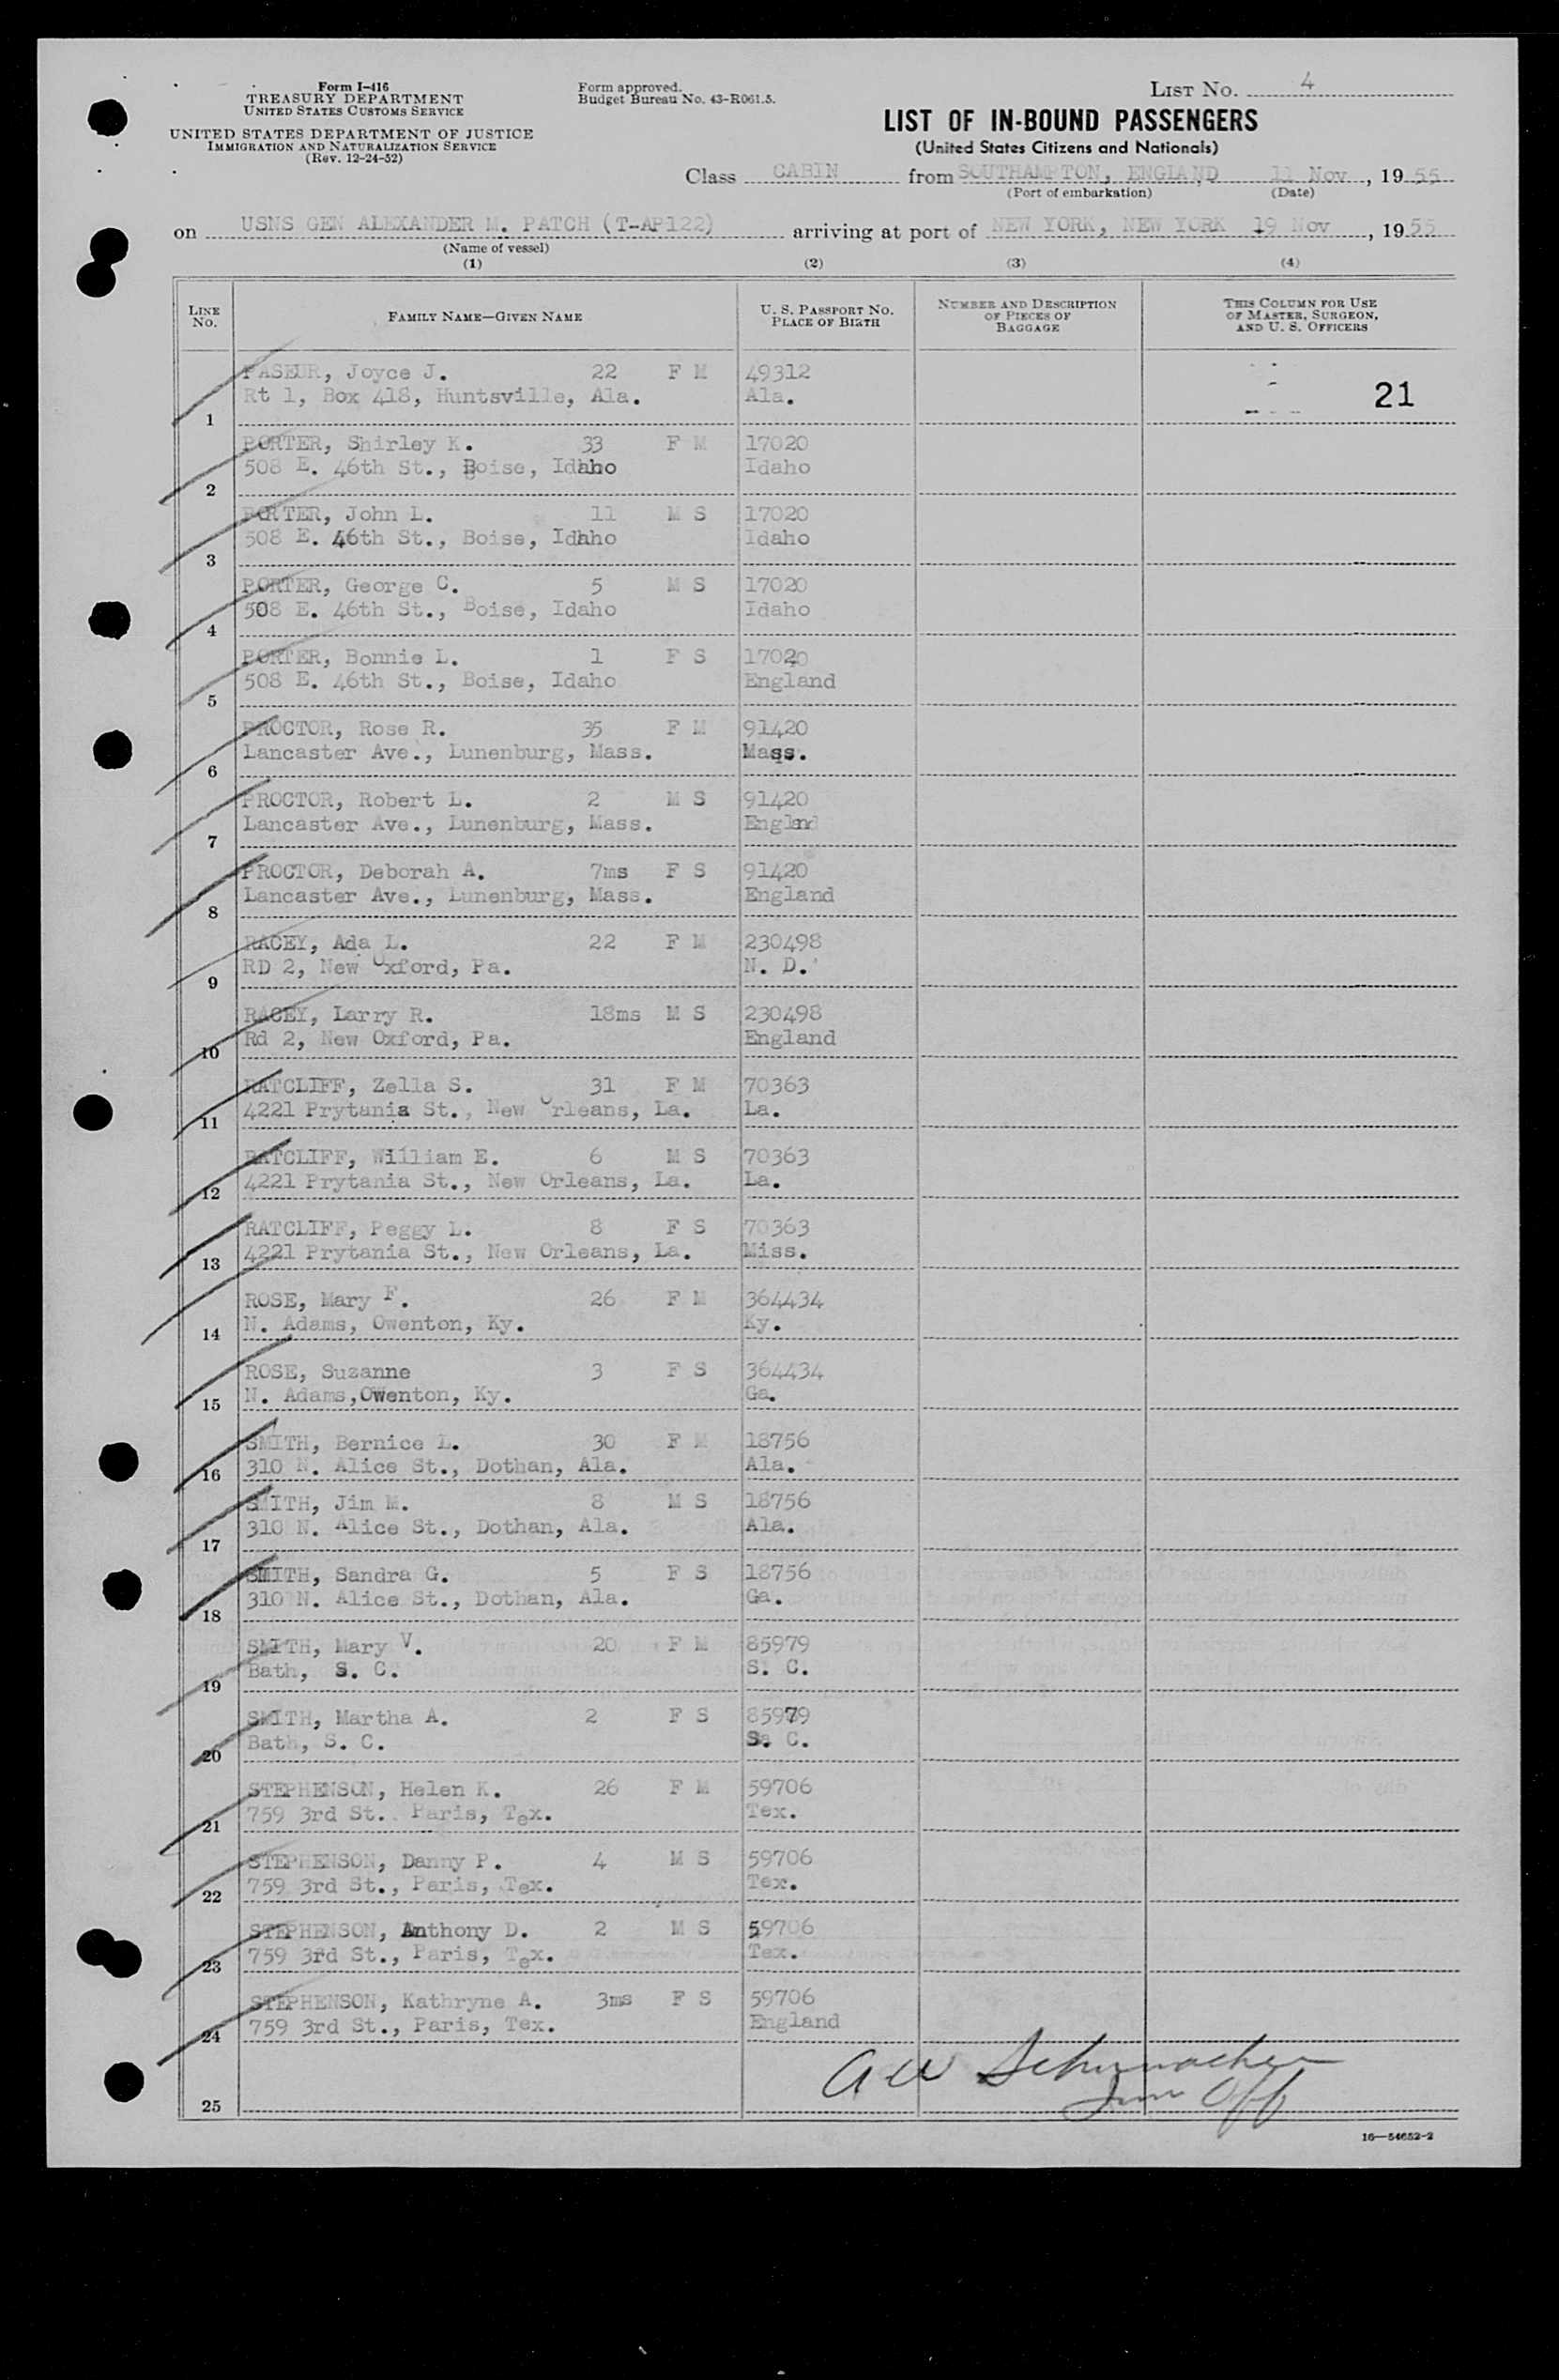 Form I-416
TREASURY DEPARTMENT
UNITED STATES CUSTOMS SERVICE
UNITED STATES DEPARTMENT OF JUSTICE
IMMIGRATION AND NATURALIZATION SERVICE
(Rev. 12-24-52)
Form approved.
Budget Bureau No. 43-R061.5.
LIST NO. 4
LIST OF IN-BOUND PASSENGERS
(United States Citizens and Nationals)
Class CABIN from SOUTHAMPTON, ENGLAND 11 Nov, 1955
(Port of embarkation) (Date)
on USNS GEN ALEXANDER M. PATCH (T-AP122) arriving at port of NEW YORK, NEW YORK 19 Nov, 1955
(Name of vessel)
(1) (2) (3) (4)
LINE NO. FAMILY NAME—GIVEN NAME U. S. PASSPORT NO. PLACE OF BIRTH NUMBER AND DESCRIPTION OF PIECES OF BAGGAGE THIS COLUMN FOR USE OF MASTER, SURGEON, AND U. S. OFFICERS
PASEUR, Joyce J. 22 F M 49312
Rt 1, Box 418, Huntsville, Ala. Ala. 21
1
PORTER, Shirley K. 33 F M 17020
508 E. 46th St., Boise, Idaho Idaho
2
PORTER, John L. 11 M S 17020
508 E. 46th St., Boise, Idaho Idaho
3
PORTER, George C. 5 M S 17020
508 E. 46th St., Boise, Idaho Idaho
4
PORTER, Bonnie L. 1 F S 17020
508 E. 46th St., Boise, Idaho England
5
PROCTOR, Rose R. 35 F M 91420
Lancaster Ave., Lunenburg, Mass. Mass.
6
PROCTOR, Robert L. 2 M S 91420
Lancaster Ave., Lunenburg, Mass. England
7
PROCTOR, Deborah A. 7ms F S 91420
Lancaster Ave., Lunenburg, Mass. England
8
RACEY, Ada L. 22 F M 230498
RD 2, New Oxford, Pa. N. D.
9
RACEY, Larry R. 18ms M S 230498
Rd 2, New Oxford, Pa. England
10
RATCLIFF, Zella S. 31 F M 70363
4221 Prytania St., New Orleans, La. La.
11
RATCLIFF, William E. 6 M S 70363
4221 Prytania St., New Orleans, La. La.
12
RATCLIFF, Peggy L. 8 F S 70363
4221 Prytania St., New Orleans, La. Miss.
13
ROSE, Mary F. 26 F M 364434
N. Adams, Owenton, Ky. Ky.
14
ROSE, Suzanne 3 F S 364434
N. Adams,Owenton, Ky. Ga.
15
SMITH, Bernice L. 30 F M 18756
310 N. Alice St., Dothan, Ala. Ala.
16
SMITH, Jim M. 8 M S 18756
310 N. Alice St., Dothan, Ala. Ala.
17
SMITH, Sandra G. 5 F S 18756
310 N. Alice St., Dothan, Ala. Ga.
18
SMITH, Mary V. 20 F M 85979
Bath, S. C. S. C.
19
SMITH, Martha A. 2 F S 85979
Bath, S. C. S. C.
20
STEPHENSON, Helen K. 26 F M 59706
759 3rd St. Paris, Tex. Tex.
21
STEPHENSON, Danny P. 4 M S 59706
759 3rd St., Paris, Tex. Tex.
22
STEPHENSON, Anthony D. 2 M S 59706
759 3rd St., Paris, Tex. Tex.
23
STEPHENSON, Kathryne A. 3ms F S 59706
759 3rd St., Paris, Tex. England
24
A W Schumacher
Imm Off
25
16—54652-2